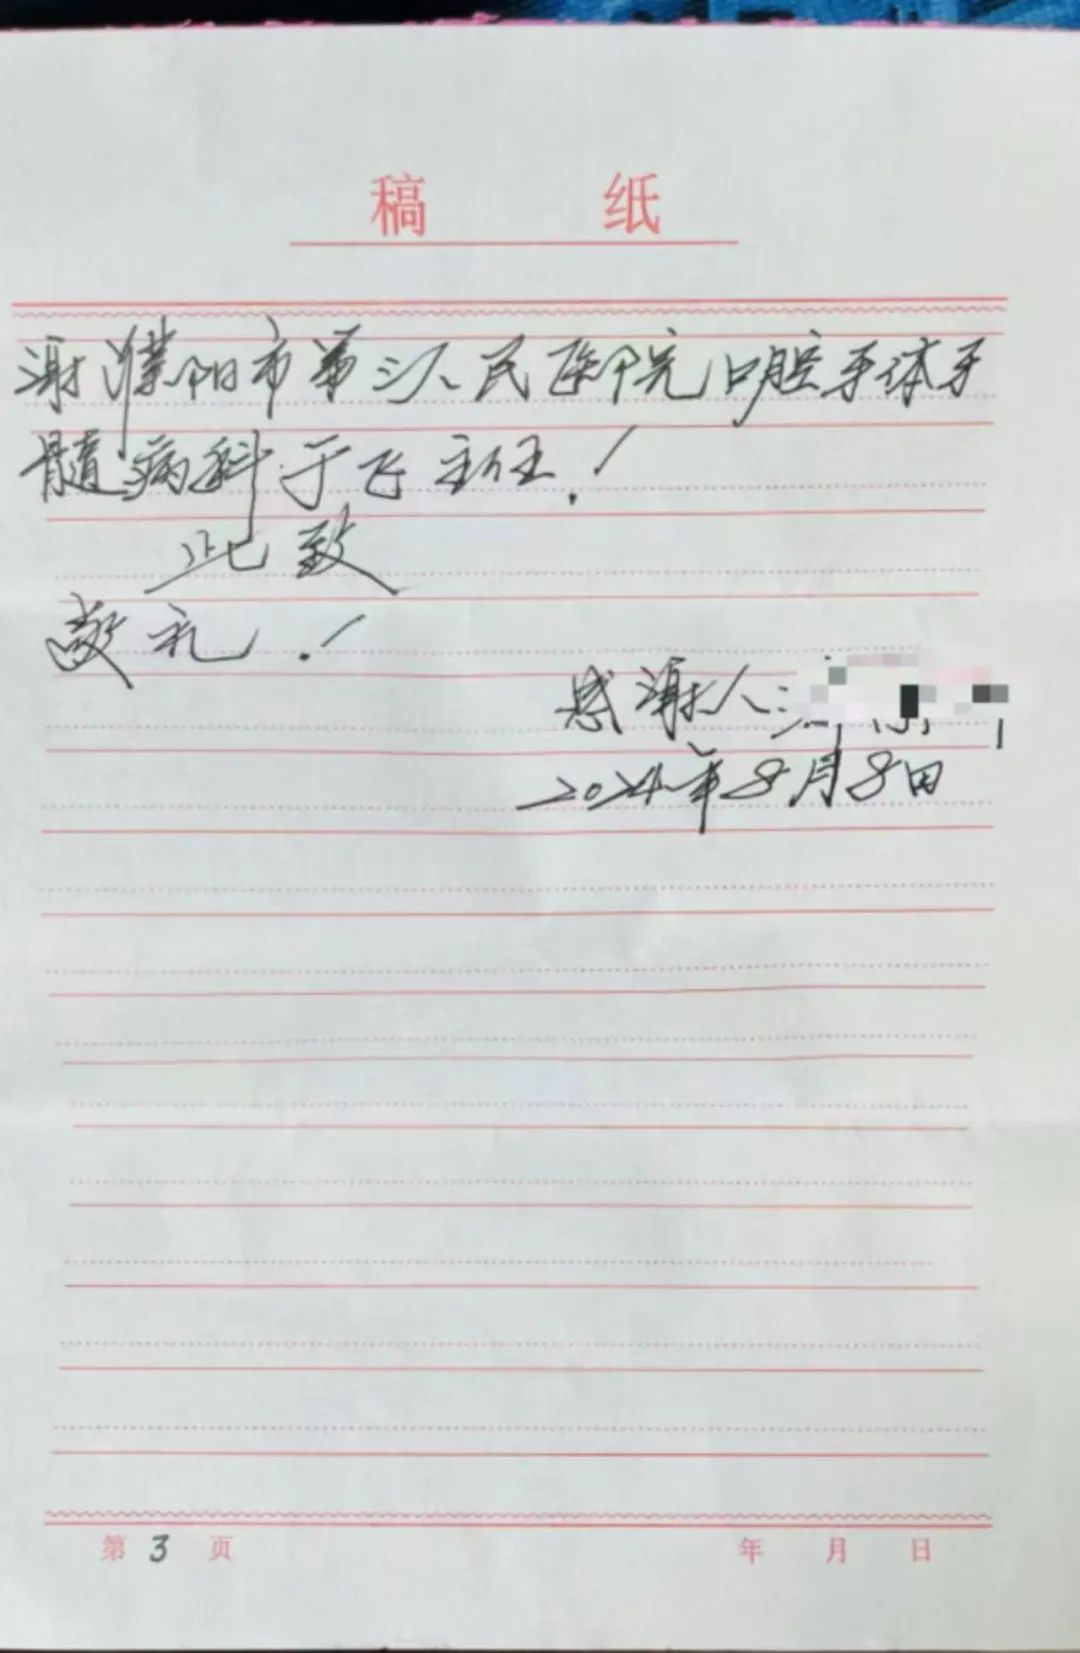 稿 纸
谢濮阳市第三人民医院口腔牙体牙
髓病科于飞主任！
此致
敬礼！
感谢人
2024年8月8日
第3页 年 月 日